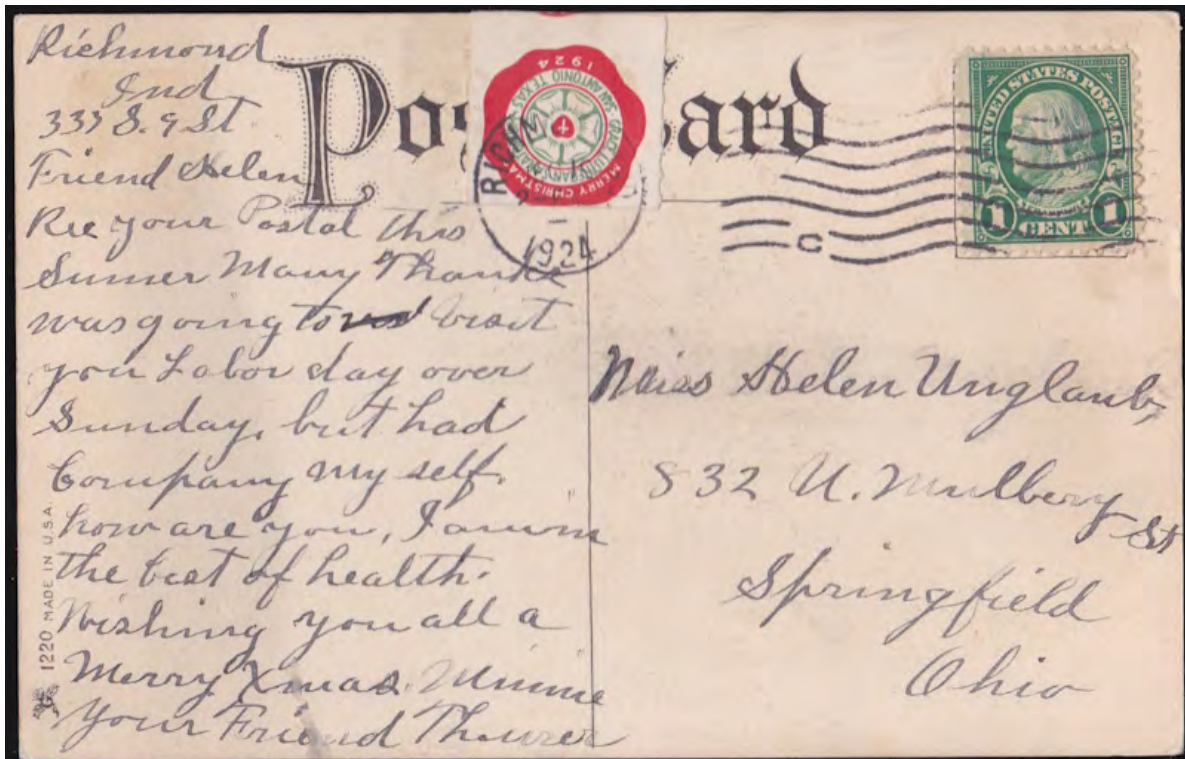 Richmond
Ind
337 S. 9 St
Friend Helen
Rec your Postal this
Sumer Many Thanks
was going to visit
you Labor day over
Sunday, but had
Company my self.
how are you, I am in
the best of health.
Wishing you all a
Merry Xmas. Minnie
Your Friend Theurer
Post Card
1924
SAN ANTONIO TEXAS
GRACE LUTHERAN SANATORIUM
MERRY CHRISTMAS
4
RICHM
1924
C
UNITED STATES POSTAGE
1 CENT 1
Miss Helen Unglaub,
832 N. Mulbery
St
Springfield
Ohio
1220 MADE IN U.S.A.